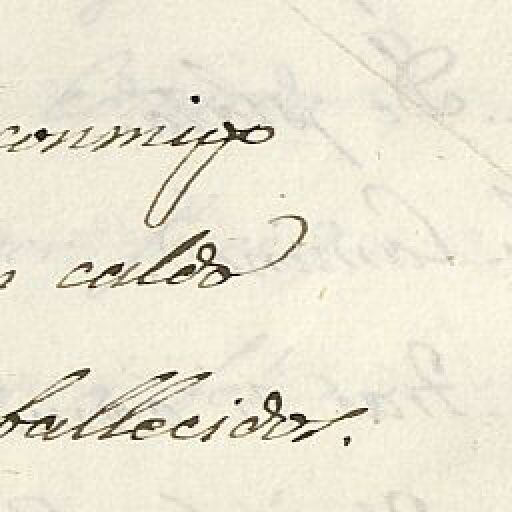 conmigo
caldo
fallecidos.